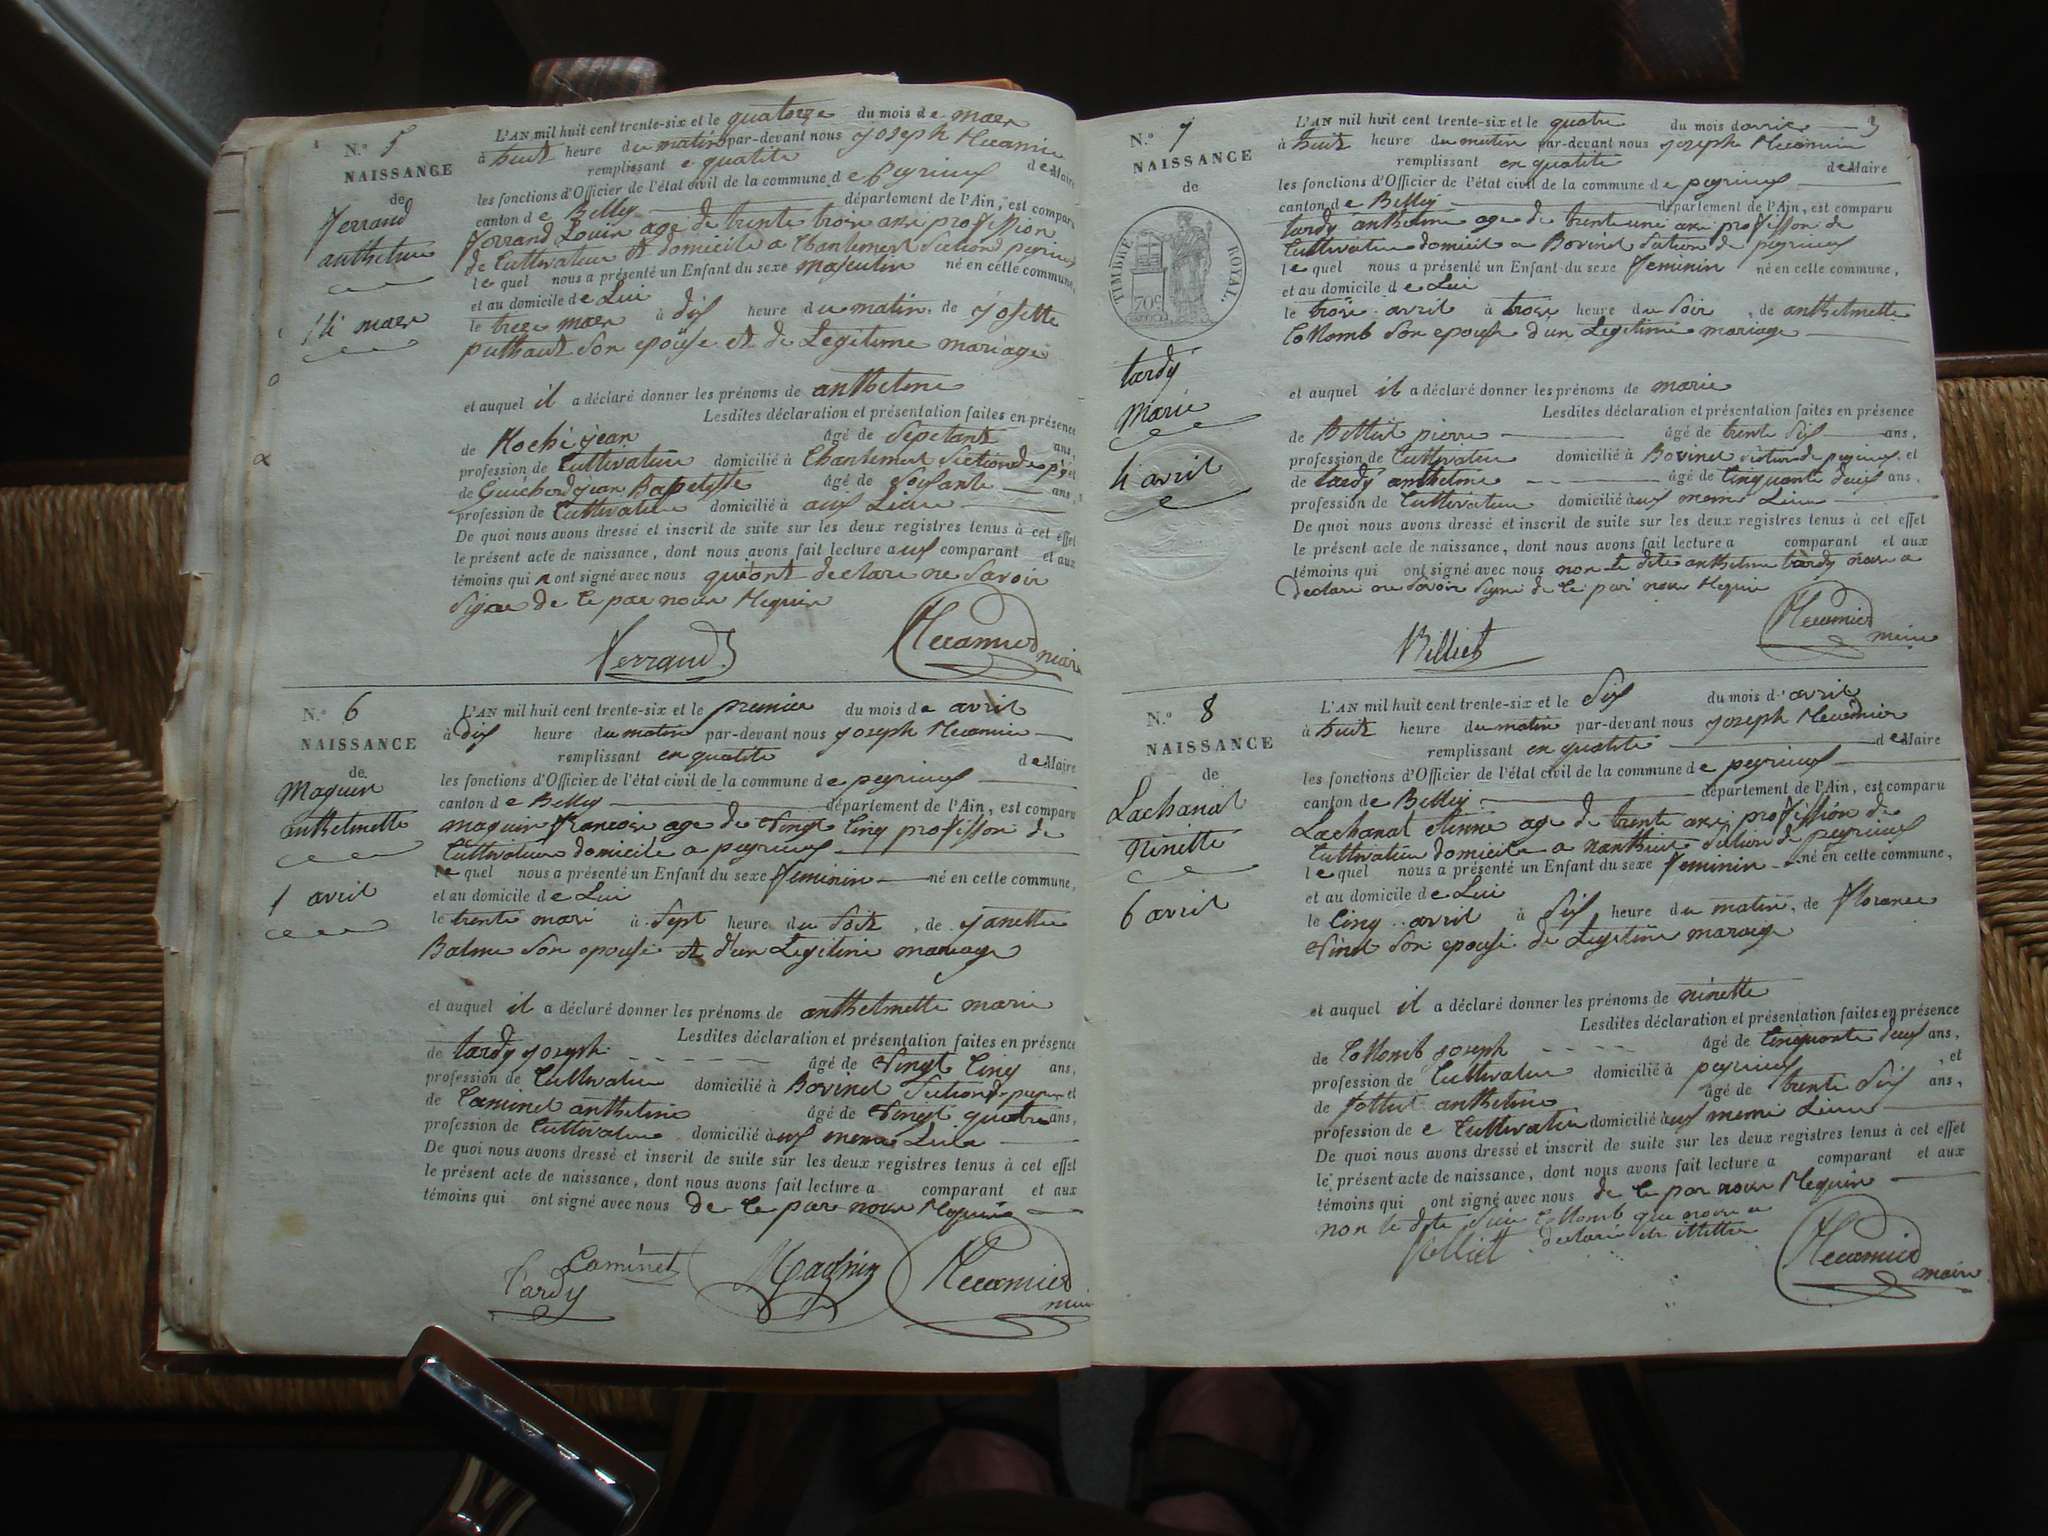 N.º 5
NAISSANCE
de
ferrand
anthelme
14 mars
L'AN mil huit cent trente-six et le quatorze du mois de mars
à huit heure du matin par-devant nous joseph Recamier
remplissant e qualité de Maire
les fonctions d'Officier de l'état civil de la commune de peyrieux
canton de Belley département de l'Ain, est comparu
ferrand Louis age de trente trois ans profession
de Cultivateur et domicile a Chantemerl Section d peyrieux
le quel nous a présenté un Enfant du sexe masculin né en cette commune,
et au domicile de Lui
le treze mars à dix heure du matin de josette
puthaud son epouse et de Legitime mariage
et auquel il a déclaré donner les prénoms de anthelme
Lesdites déclaration et présentation faites en présence
de Roche jean âgé de Septante ans,
profession de Cultivateur domicilié à Chantemerl Section de p. et
de Guicherd jean Baptiste âgé de Soixante ans,
profession de Cultivateur domicilié à aux Lieu
De quoi nous avons dressé et inscrit de suite sur les deux registres tenus à cet effet
le présent acte de naissance, dont nous avons fait lecture aux comparant et aux
témoins qui n ont signé avec nous qui ont declare ne Savoir
Signe de Ce par nous Requis
ferrand
Recamier maire
N.º 6
NAISSANCE
de
Maguin
anthelmette
1 avril
L'AN mil huit cent trente-six et le premier du mois de avril
à dix heure du matin par-devant nous joseph Recamier
remplissant en qualité de Maire
les fonctions d'Officier de l'état civil de la commune de peyrieux
canton de Belley département de l'Ain, est comparu
maguin francois age de Vingt Cinq profession de
Cultivateur domicile a peyrieux
le quel nous a présenté un Enfant du sexe feminin né en cette commune,
et au domicile de Lui
le trente mars à Sept heure du Soir, de janette
Balme son epouse et d'un Legitime mariage
et auquel il a déclaré donner les prénoms de anthelmette marie
Lesdites déclaration et présentation faites en présence
de tardy joseph âgé de Vingt Cinq ans,
profession de Cultivateur domicilié à Bovinel Section d. peyrieux et
de Caminet anthelme âgé de Vingt quatre ans,
profession de Cultivateur domicilié à aux meme Lieu
De quoi nous avons dressé et inscrit de suite sur les deux registres tenus à cet effet
le présent acte de naissance, dont nous avons fait lecture a comparant et aux
témoins qui ont signé avec nous de Ce par nous Requis
Caminet
Tardy
Magnin
Recamier maire
3
N.º 7
NAISSANCE
de
TIMBRE ROYAL
70c
tardy
Marie
4 avril
L'AN mil huit cent trente-six et le quatre du mois d avril
à huit heure du matin par-devant nous joseph Recamier
remplissant en qualité de Maire
les fonctions d'Officier de l'état civil de la commune de peyrieux
canton de Belley département de l'Ain, est comparu
tardy anthelme age de trente une ans profession de
Cultivateur domicil a Bovinel Section de peyrieux
le quel nous a présenté un Enfant du sexe feminin né en cette commune,
et au domicile de Lui
le trois avril à trois heure du Soir, de anthelmette
Collomb son epouse d'un Legitime mariage
et auquel il a déclaré donner les prénoms de marie
Lesdites déclaration et présentation faites en présence
de Billiet pierre âgé de trente Six ans,
profession de Cultivateur domicilié à Bovinel section de peyrieux et
de tardy anthelme âgé de Cinquante deux ans,
profession de Cultivateur domicilié à aux meme Lieu
De quoi nous avons dressé et inscrit de suite sur les deux registres tenus à cet effet
le présent acte de naissance, dont nous avons fait lecture a comparant et aux
témoins qui ont signé avec nous non le dite anthelme tardy nous a
declare ne Savoir Signe de Ce par nous Requis
Billiet
Recamier maire
N.º 8
NAISSANCE
de
Lachanal
Ninette
6 avril
L'AN mil huit cent trente-six et le Six du mois d'avril
à huit heure du matin par-devant nous joseph Recamier
remplissant en qualité de Maire
les fonctions d'Officier de l'état civil de la commune de peyrieux
canton de Belley département de l'Ain, est comparu
Lachanal etienne age de trente ans profession de
Cultivateur domicile a nanthuit Section de peyrieux
le quel nous a présenté un Enfant du sexe feminin né en cette commune,
et au domicile de Lui
le Cinq avril à Six heure du matin, de florance
Vinet son epouse de Legitime mariage
et auquel il a déclaré donner les prénoms de ninette
Lesdites déclaration et présentation faites en présence
de Collomb joseph âgé de Cinquante deux ans,
profession de Cultivateur domicilié à peyrieux, et
de jolliet anthelme âgé de trente Six ans,
profession de e Cultivateur domicilié à aux meme Lieu
De quoi nous avons dressé et inscrit de suite sur les deux registres tenus à cet effet
le présent acte de naissance, dont nous avons fait lecture a comparant et aux
témoins qui ont signé avec nous de Ce par nous Requis
non le dite Sieur Collomb que nous a
declaré etre illettre
Jolliet
Recamier maire